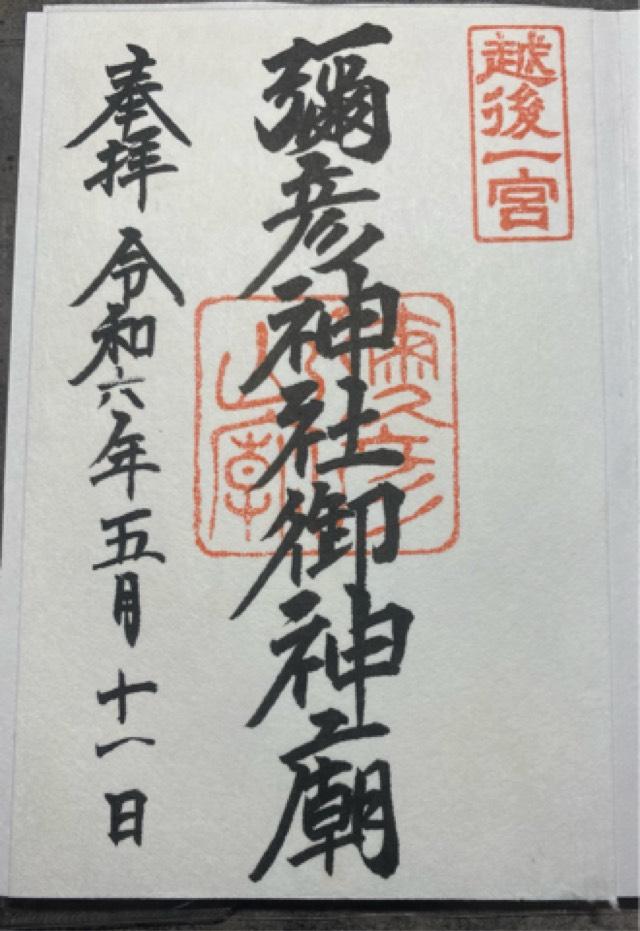 越後一宮
彌彦神社御神廟
奉拝 令和六年五月十一日